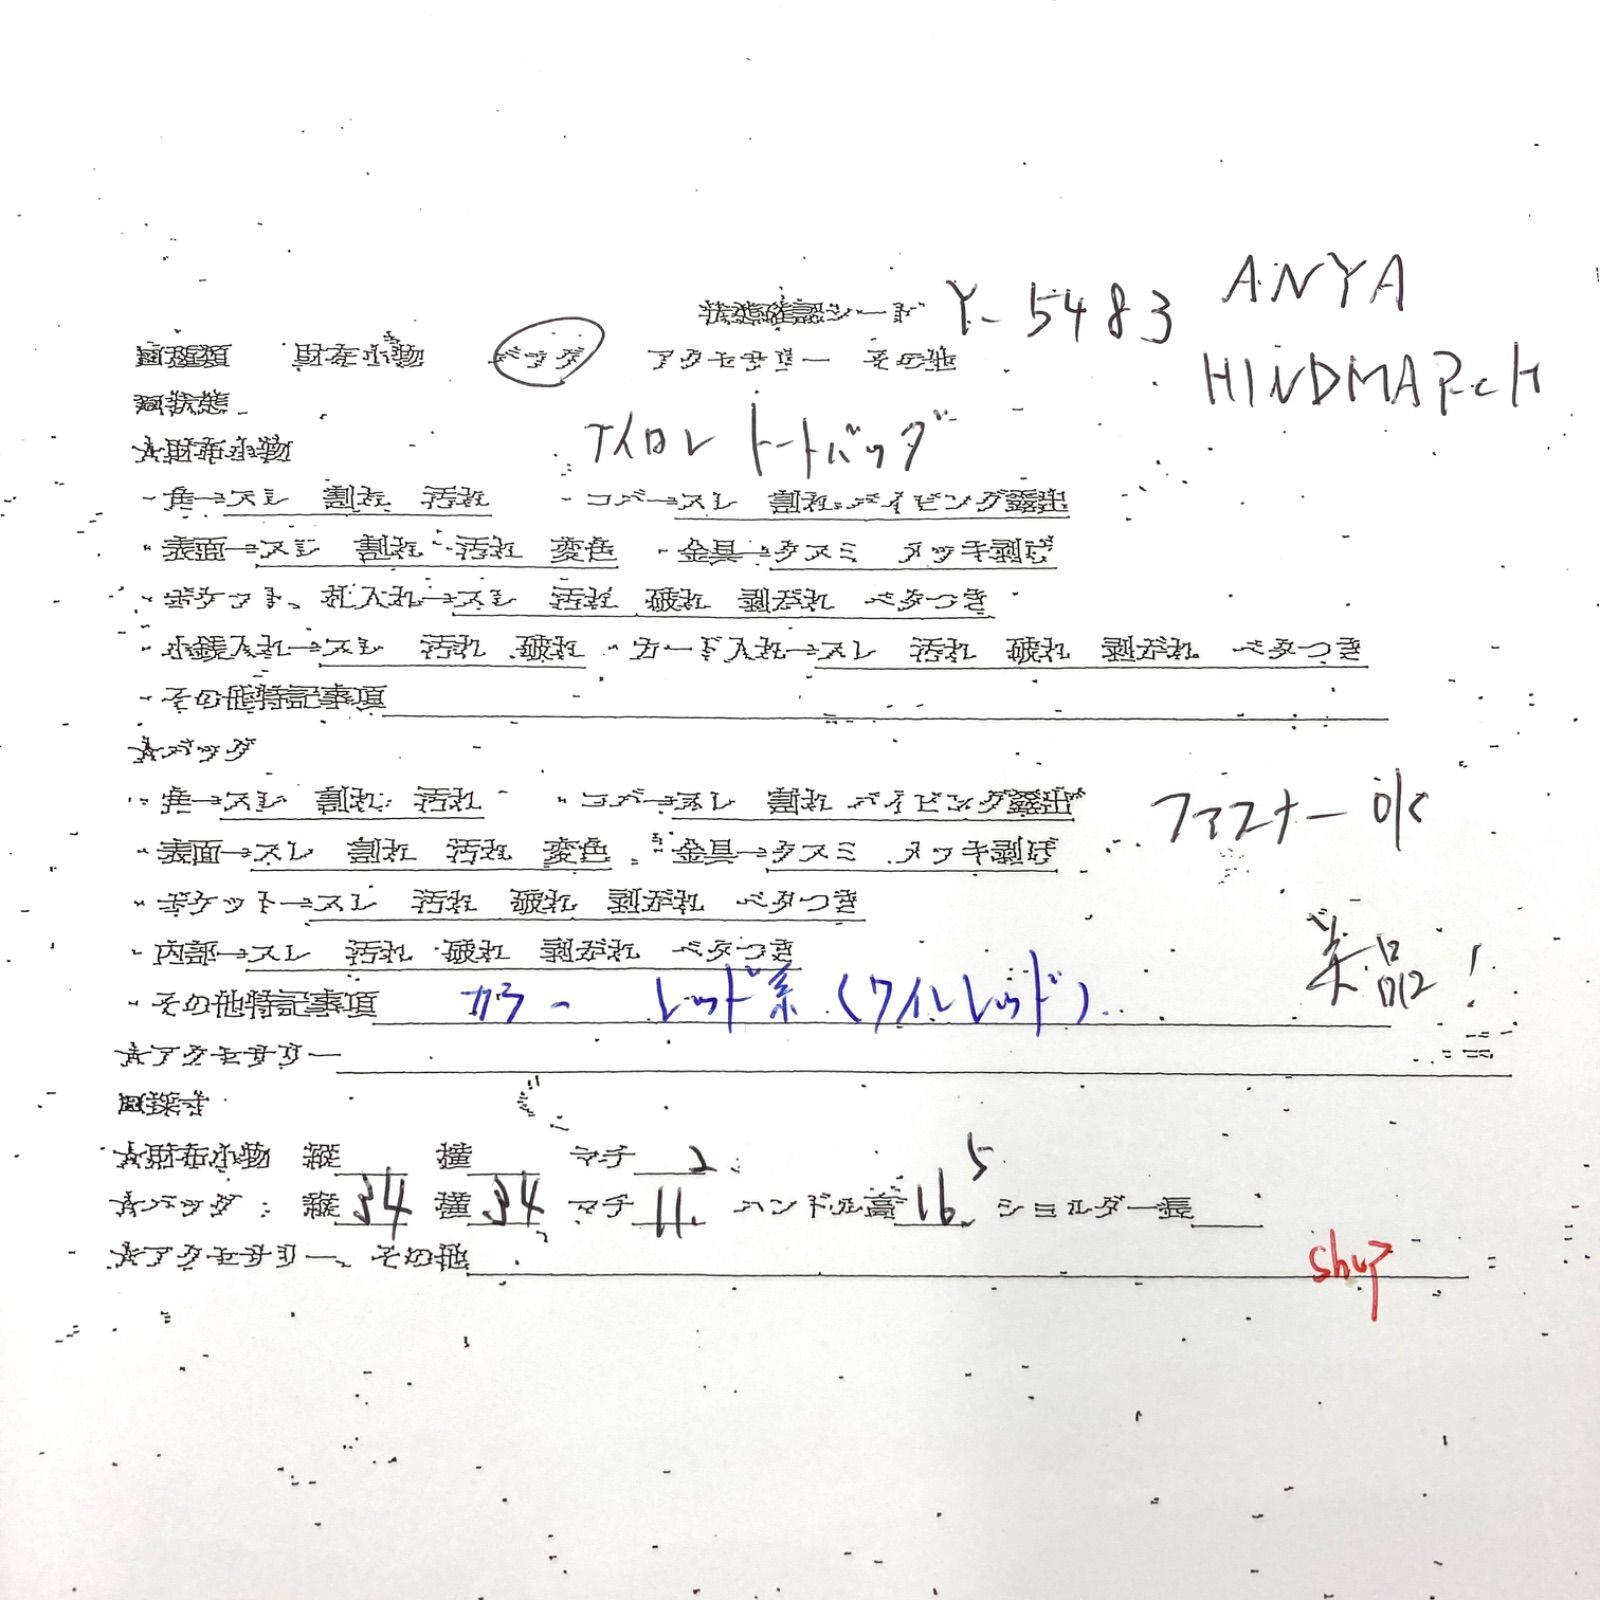 状態確認シート Y-5483 ANYA HINDMARCH
回種類 財布小物 バッグ アクセサリー その他
回状態
ナイロン トートバッグ
☆財布小物
・角→スレ 割れ 汚れ ・コバ→スレ 割れ パイピング露出
・表面→スレ 割れ 汚れ 変色 ・金具→クスミ メッキ剥げ
・ポケット、札入れ→スレ 汚れ 破れ 剥がれ ベタつき
・小銭入れ→スレ 汚れ 破れ ・カード入れ→スレ 汚れ 破れ 剥がれ ベタつき
・その他特記事項
☆バッグ
・角→スレ 割れ 汚れ ・コバ→スレ 割れ パイピング露出 ファスナー ok
・表面→スレ 割れ 汚れ 変色 ・金具→クスミ メッキ剥げ
・ポケット→スレ 汚れ 破れ 剥がれ ベタつき
・内部→スレ 汚れ 破れ 剥がれ ベタつき
美品!
・その他特記事項 カラー レッド系(ワインレッド)
☆アクセサリー
回採寸
☆財布小物 縦 横 マチ 2
☆バッグ: 縦 34 横 34 マチ 11. ハンドル高 16.5 ショルダー長
☆アクセサリー、その他